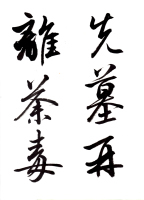 先墓再
離荼毒